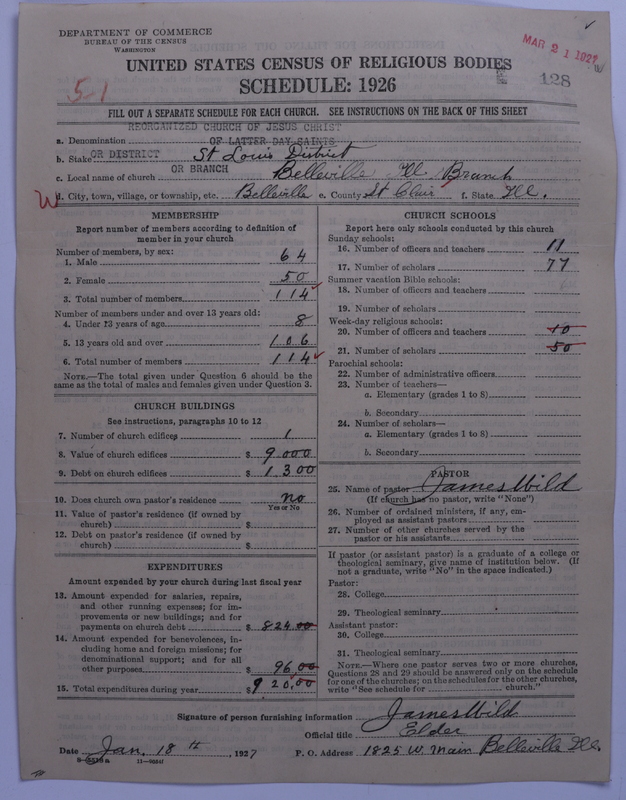 DEPARTMENT OF COMMERCE
BUREAU OF THE CENSUS
WASHINGTON
MAR 21 1927
UNITED STATES CENSUS OF RELIGIOUS BODIES
SCHEDULE: 1926
128
5-1
FILL OUT A SEPARATE SCHEDULE FOR EACH CHURCH. SEE INSTRUCTIONS ON THE BACK OF THIS SHEET
REORGANIZED CHURCH OF JESUS CHRIST
a. Denomination OF LATTER DAY SAINTS
b. Stake OR DISTRICT St Louis District
c. Local name of church OR BRANCH Belleville Ill Branch
d. City, town, village, or township, etc. Belleville e. County St Clair f. State Ill.
MEMBERSHIP
Report number of members according to definition of
member in your church
Number of members, by sex:
1. Male 64
2. Female 50
3. Total number of members 114
Number of members under and over 13 years old:
4. Under 13 years of age 8
5. 13 years old and over 106
6. Total number of members 114
NOTE.—The total given under Question 6 should be
same as the total of males and females given under Question 3.
CHURCH BUILDINGS
See instructions, paragraphs 10 to 12
7. Number of church edifices 1
8. Value of church edifices $ 9000
9. Debt on church edifices $ 1300
10. Does church own pastor's residence no
Yes or No
11. Value of pastor's residence (if owned by
church) $
12. Debt on pastor's residence (if owned by
church) $
EXPENDITURES
Amount expended by your church during last fiscal year
13. Amount expended for salaries, repairs,
and other running expenses; for im-
provements or new buildings; and for
payments on church debt $ 824.00
14. Amount expended for benevolences, in-
cluding home and foreign missions; for
denominational support; and for all
other purposes $ 96.00
15. Total expenditures during year $ 920.00
CHURCH SCHOOLS
Report here only schools conducted by this church
Sunday schools:
16. Number of officers and teachers 11
17. Number of scholars 77
Summer vacation Bible schools:
18. Number of officers and teachers
19. Number of scholars
Week-day religious schools:
20. Number of officers and teachers 10
21. Number of scholars 50
Parochial schools:
22. Number of administrative officers
23. Number of teachers—
a. Elementary (grades 1 to 8)
b. Secondary
24. Number of scholars—
a. Elementary (grades 1 to 8)
b. Secondary
PASTOR
25. Name of pastor James Wild
(If church has no pastor, write "None")
26. Number of ordained ministers, if any, em-
ployed as assistant pastors
27. Number of other churches served by the
pastor or his assistants
If pastor (or assistant pastor) is a graduate of a college or
theological seminary, give name of institution below. (If
not a graduate, write "No" in the space indicated.)
Pastor:
28. College
29. Theological seminary
Assistant pastor:
30. College
31. Theological seminary
NOTE.—Where one pastor serves two or more churches,
Questions 28 and 29 should be answered only on the schedule
for one of the churches; on the schedules for the other churches,
write "See schedule for church."
Signature of person furnishing information James Wild
Official title Elder
Date Jan. 18th, 1927 P. O. Address 1825 W. Main Belleville Ill.